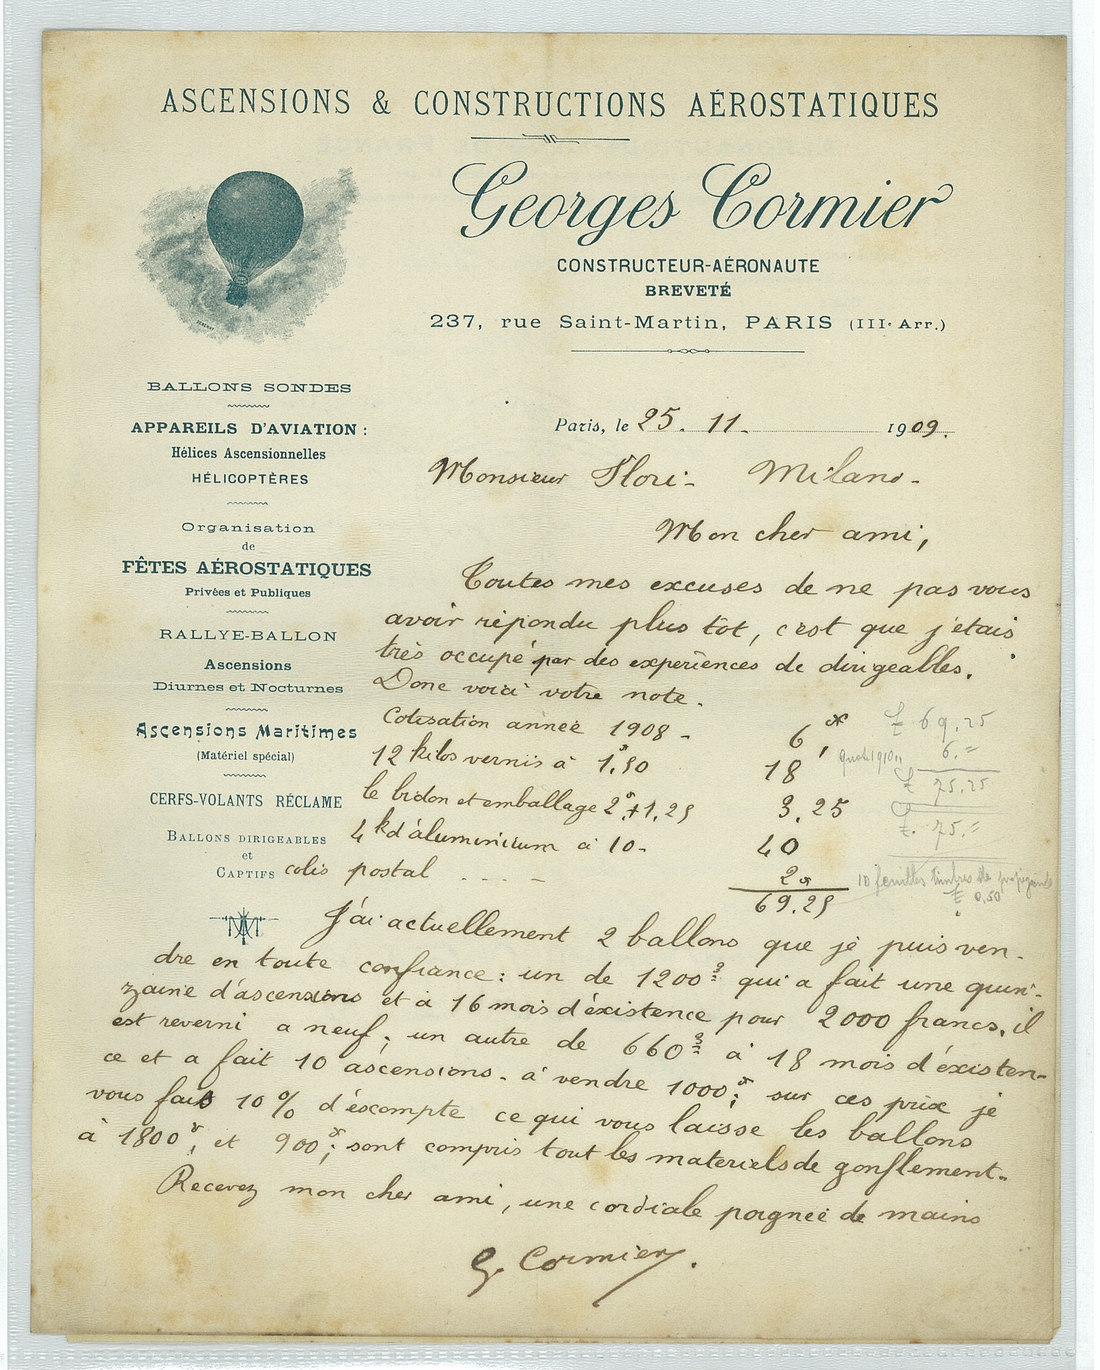 ASCENSIONS & CONSTRUCTIONS AÉROSTATIQUES
Georges Cormier
CONSTRUCTEUR-AÉRONAUTE
BREVETÉ
237, rue Saint-Martin, PARIS (IIIe Arr.)
BALLONS SONDES
APPAREILS D'AVIATION :
Hélices Ascensionnelles
HÉLICOPTÈRES
Organisation
de
FÊTES AÉROSTATIQUES
Privées et Publiques
RALLYE-BALLON
Ascensions
Diurnes et Nocturnes
Ascensions Maritimes
(Matériel spécial)
CERFS-VOLANTS RÉCLAME
BALLONS DIRIGEABLES
et
CAPTIFS
Paris, le 25. 11. 1909.
Monsieur Flori- Milano-
Mon cher ami,
Toutes mes excuses de ne pas vous
avoir répondu plus tôt, c'est que j'étais
très occupé par des expériences de dirigeables.
Donc voici votre note.
Cotisation année 1908 - 6 fr
12 kilos vernis à 1,50 18
le bidon et emballage 2f+1,25 3,25
4 k d'aluminium à 10- 40
colis postal 2fr
69.25
£ 69,25
6.=
£ 75,25
£. 75.=
10 feuilles timbres de propagande
£ 0,50
J'ai actuellement 2 ballons que je puis ven-
dre en toute confiance : un de 1200 m3 qui a fait une quin-
zaine d'ascensions et à 16 mois d'éxistence pour 2000 francs, il
est reverni a neuf ; un autre de 660 m3 à 18 mois d'éxisten-
ce et a fait 10 ascensions - à vendre 1000fr; sur ces prix je
vous fais 10 % d'éscompte ce qui vous laisse les ballons
à 1800fr, et 900fr; sont compris tout les materiels de gonflement.
Recevez mon cher ami, une cordiale poignée de mains
G. Cormier.